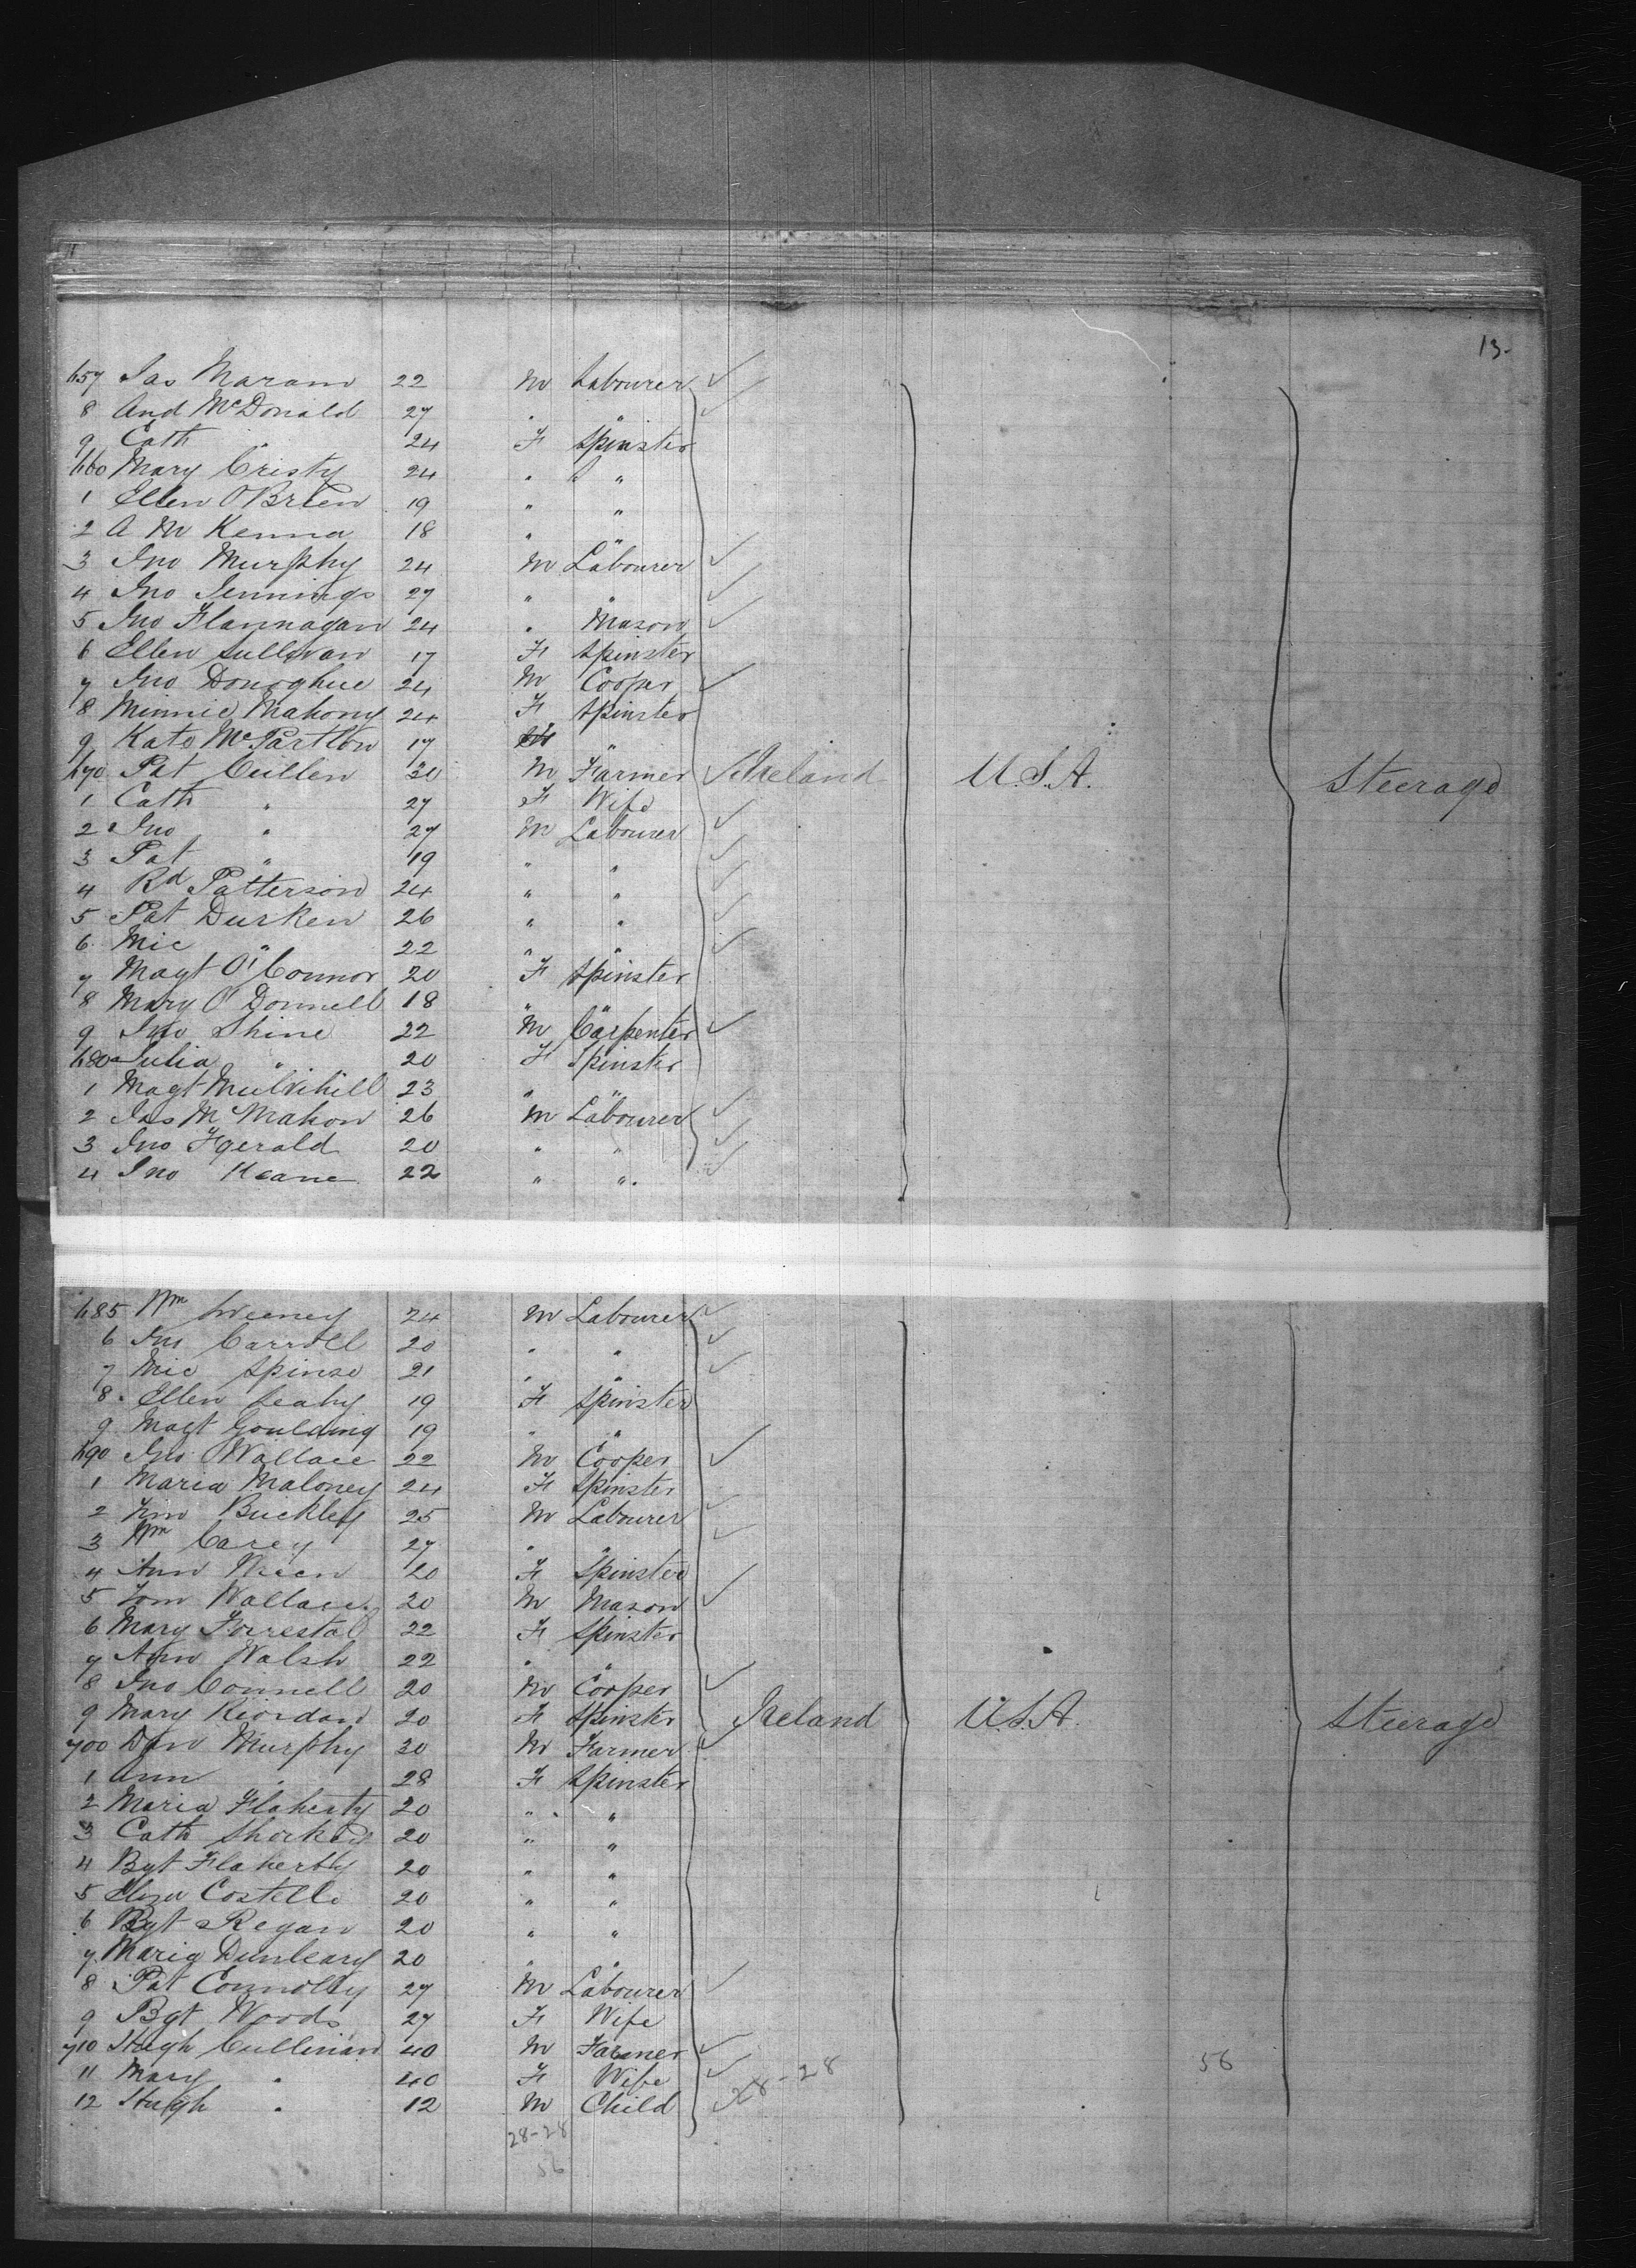 13.
657 Jas Maram 22 M Labourer
8 And McDonald 27 " "
9 Cath " 24 F Spinster
660 Mary Cristy 24 " "
1 Ellen O'Brien 19 " "
2 A M Kenna 18 " "
3 Jno Murphy 24 M Labourer
4 Jno Jennings 27 " "
5 Jno Flannagan 24 " Mason
6 Ellen Sullivan 17 F Spinster
7 Jno Donoghue 24 M Cooper
8 Minnie Mahony 24 F Spinster
9 Kate McPartlon 17 "
670 Pat Cullen 30 M Farmer Ireland U.S.A. Steerage
1 Cath " 27 F Wife
2 Jno " 27 M Labourer
3 Pat " 19 " "
4 Rd Patterson 24 " "
5 Pat Durken 26 " "
6 Mic " 22 " "
7 Magt O'Connor 20 F Spinster
8 Mary O'Donnell 18 " "
9 Jno Shine 22 M Carpenter
680 Julia " 20 F Spinster
1 Magt Mulvihill 23 " "
2 Jas McMahon 26 M Labourer
3 Jno Fgerald 20 " "
4 Jno Keane 22 " "
685 Wm Sweeney 24 M Labourer
6 Jno Carroll 20 " "
7 Mic 21 " "
8 Ellen Leahy 19 F Spinster
9 Magt Goulding 19 " "
690 Jno Wallace 22 M Cooper
1 Maria Maloney 24 F Spinster
2 Buckley 25 M Labourer
3 Wm Carey 27 " "
4 Ann 20 F Spinster
5 Tom Wallace 20 M Mason
6 Mary Forrestal 22 F Spinster
7 Ann Walsh 22 " "
8 Jno Connell 20 M Cooper
9 Mary Riordan 20 F Spinster Ireland U.S.A. Steerage
700 Dan Murphy 30 M Farmer
1 Ann " 28 F Spinster
2 Maria Flaherty 20 " "
3 Cath 20 " "
4 Bgt Flaherty 20 " "
5 Eliza Costello 20 " "
6 Bgt Regan 20 " "
7 Maria Dunleary 20 " "
8 Pat Connolly 27 M Labourer
9 Bgt Woods 27 F Wife
710 Hugh Cullinan 40 M Farmer
11 Mary " 40 F Wife 28-28 56
12 Hugh " 12 M Child
28-28
56